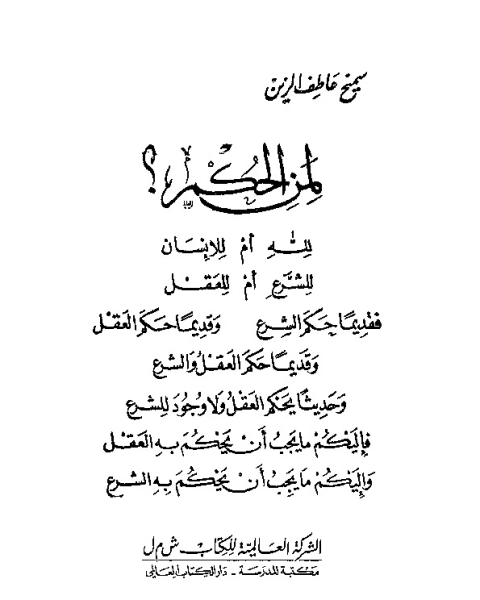 سميح عاطف الزين
لِمَنِ الحُكْم ؟
لِلّٰهِ أَمْ لِلإِنسَان
لِلشَّرْعِ أَمْ لِلعَقْل
فَقَدِيمًا حَكَمَ الشرع وَقَدِيمًا حَكَمَ العَقْل
وَقَدِيمًا حَكَمَ العَقْلُ وَالشرع
وَحَدِيثًا يَحْكُم العَقْلُ وَلَا وُجُودَ لِلشرع
فَإِلَيْكُمْ مَا يَجِبُ أَنْ يَحْكُمَ بِهِ العَقْل
وَإِلَيْكُمْ مَا يَجِبُ أَنْ يَحْكُمَ بِهِ الشرع
الشركة العالمية للكتاب ش م ل
مكتبة المدرسة - دار الكتاب العالمي